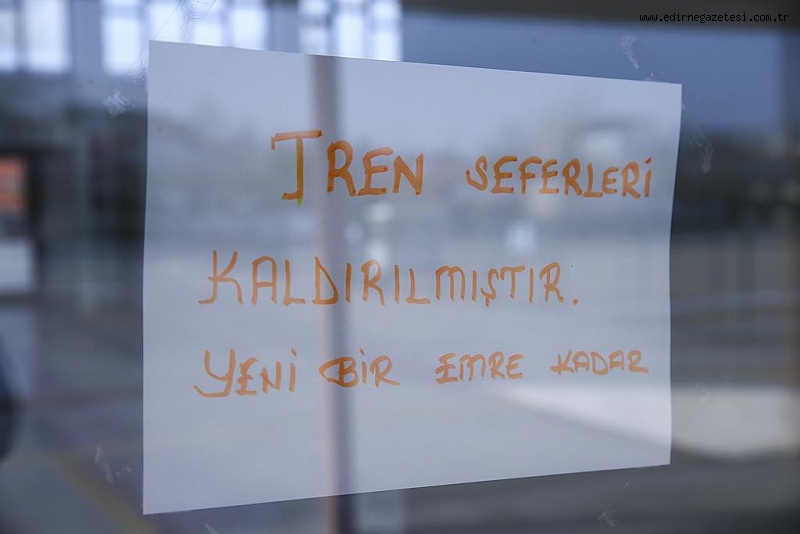 www.edirnegazetesi.com.tr
TREN SEFERLERİ
KALDIRILMIŞTIR.
YENİ BİR EMRE KADAR